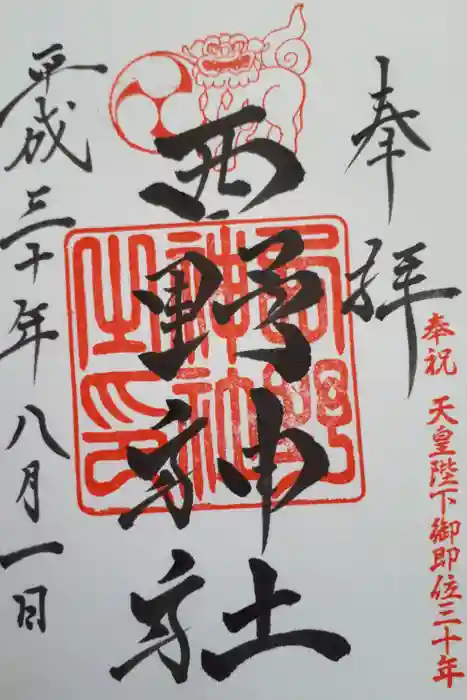 奉拝
奉祝 天皇陛下御即位三十年
西野神社
西野神社之印
平成三十年八月一日